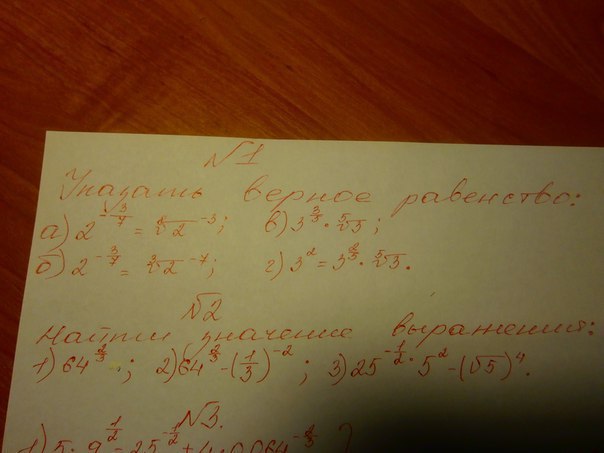 №1
Указать верное равенство:
а) 2^{-3/7} = ⁷√2^{-3}; в) 3^{3/5} · ⁵√3;
б) 2^{-3/7} = ³√2^{-7}; г) 3^2 = 3^{2/3} · ⁵√3.
№2
Найти значение выражений:
1) 64^{2/3}; 2) 64^{2/3} - (1/3)^{-2}; 3) 25^{-1/2} · 5^2 - (√5)^4.
№3.